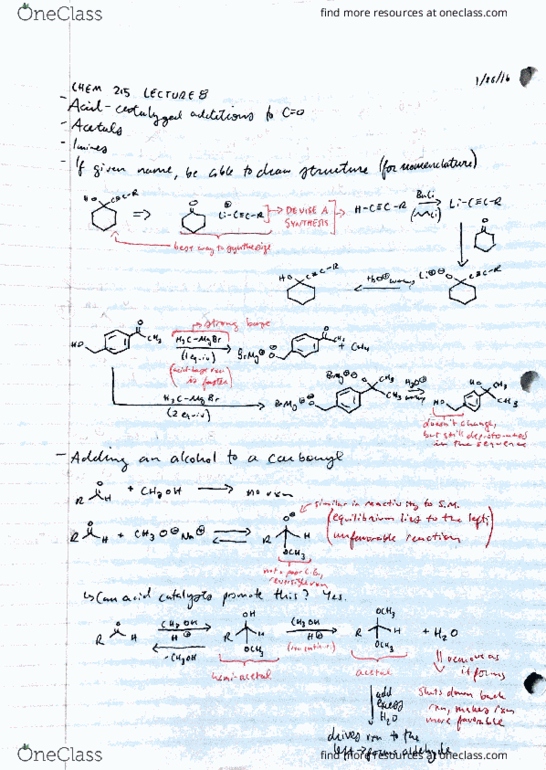 OneClass
find more resources at oneclass.com
1/26/16
CHEM 215 LECTURE 8
- Acid-catalyzed additions to C=O
- Acetals
- Imines
- If given name, be able to draw structure (for nomenclature)
HO C≡C-R
⇒
O
Li-C≡C-R
DEVISE A
SYNTHESIS
H-C≡C-R
BuLi
Li-C≡C-R
best way to synthesize
HO C≡C-R
H3O⊕ workup
Li⊕ ⊖O C≡C-R
strong base
HO
O
CH3
H3C-MgBr
(1 equiv)
(acid-base rxn
is faster)
BrMg⊕ ⊖O
O
CH3
+ CH4
H3C-MgBr
(2 equiv)
BrMg⊕ ⊖O
BrMg⊕ ⊖O CH3
CH3
H3O⊕
workup
HO
HO CH3
CH3
doesn't change,
but still deprotonated
in the sequence
- Adding an alcohol to a carbonyl
R H + CH3OH → no rxn
R H + CH3O⊖Na⊕ ⇌
O⊖
R H
OCH3
similar in reactivity to S.M.
(equilibrium lies to the left;
unfavorable reaction)
not a poor L.G.,
reversible rxn
↳ Can acid catalysts promote this? Yes.
R H
CH3OH
H⊕
-CH3OH
OH
R H
OCH3
hemi-acetal
CH3OH
H⊕
OCH3
R H
OCH3
acetal
+ H2O
remove as
it forms
shuts down back
rxn, makes rxn
more favorable
add
excess
H2O
drives rxn to the
left → forms aldehyde
OneClass
find more resources at oneclass.com